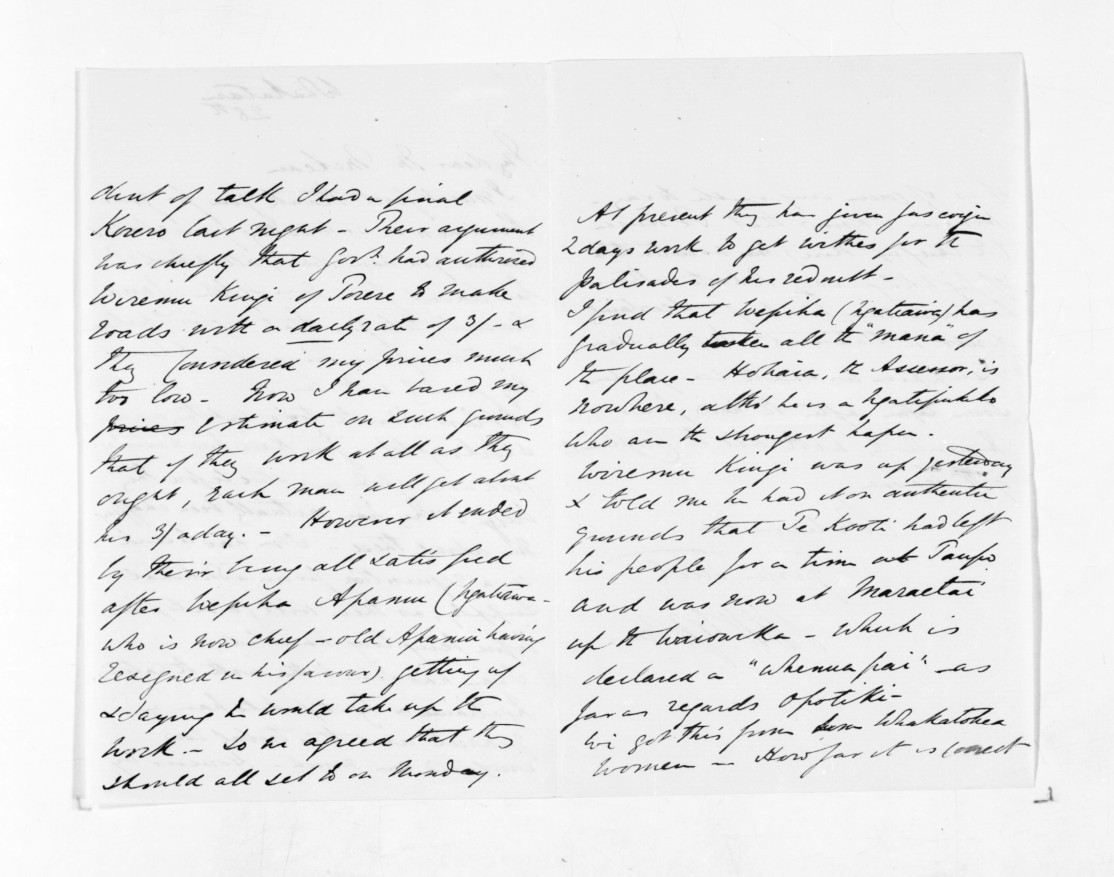 dent of talk I had a final
Korero last night - Their argument
was chiefly that Govt. had authorized
Wiremu Kingi of Torere to make
roads with a daily rate of 3/- &
they considered my prices much
too low - Now I have based my
prices estimate on such grounds
that if they work at all as they
ought, each man will get about
his 3/ a day. - However it ended
by their being all satisfied
after Wepiha Apanui (Ngatiawa -
who is now chief - old Apanui having
resigned in his favour) getting up
& saying he would take up the
work. - So we agreed that they
should all set to on Monday.
At present they have given
2 days work to get withes for the
palisades of his redoubt -
I find that Wepiha (Ngatiawa) has
gradually taken all the "mana" of
the place - Hohaia, the Assessor, is
nowhere, altho' he is a Ngatipukeko
who are the strongest hapu.
Wiremu Kingi was up yesterday
& told me he had it on authentic
grounds that Te Kooti had left
his people for a time at Taupo
and was now at Maraetai
up the Waioweka - which is
declared a "whenua pai" - as
far as regards Opotiki -
Wi got this from some Whakatohea
women - How far it is correct